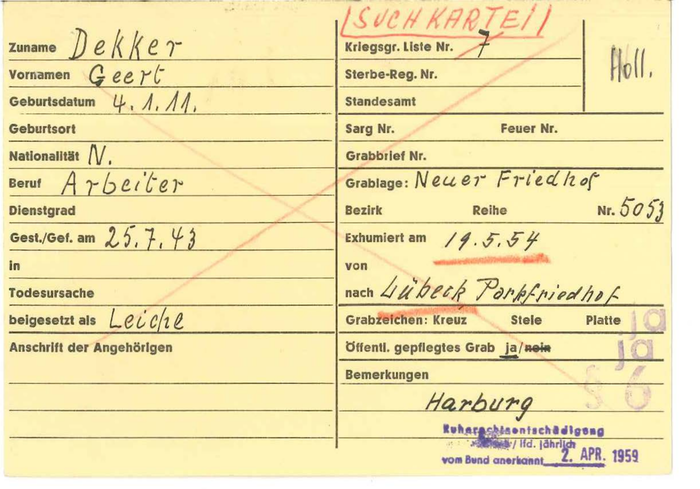 SUCHKARTEI
Zuname Dekker
Vornamen Geert
Geburtsdatum 4.1.11.
Geburtsort
Nationalität N.
Beruf Arbeiter
Dienstgrad
Gest./Gef. am 25.7.43
in
Todesursache
beigesetzt als Leiche
Anschrift der Angehörigen
Kriegsgr. Liste Nr. 7
Holl.
Sterbe-Reg. Nr.
Standesamt
Sarg Nr. Feuer Nr.
Grabbrief Nr.
Grablage: Neuer Friedhof
Bezirk Reihe Nr. 5053
Exhumiert am 19.5.54
von
nach Lübeck Parkfriedhof
Grabzeichen: Kreuz Stele Platte ja
Öffentl. gepflegtes Grab ja/nein ja
Bemerkungen § 6
Harburg
Ruherechtsentschädigung
/ lfd. jährlich
vom Bund anerkannt 2. APR. 1959